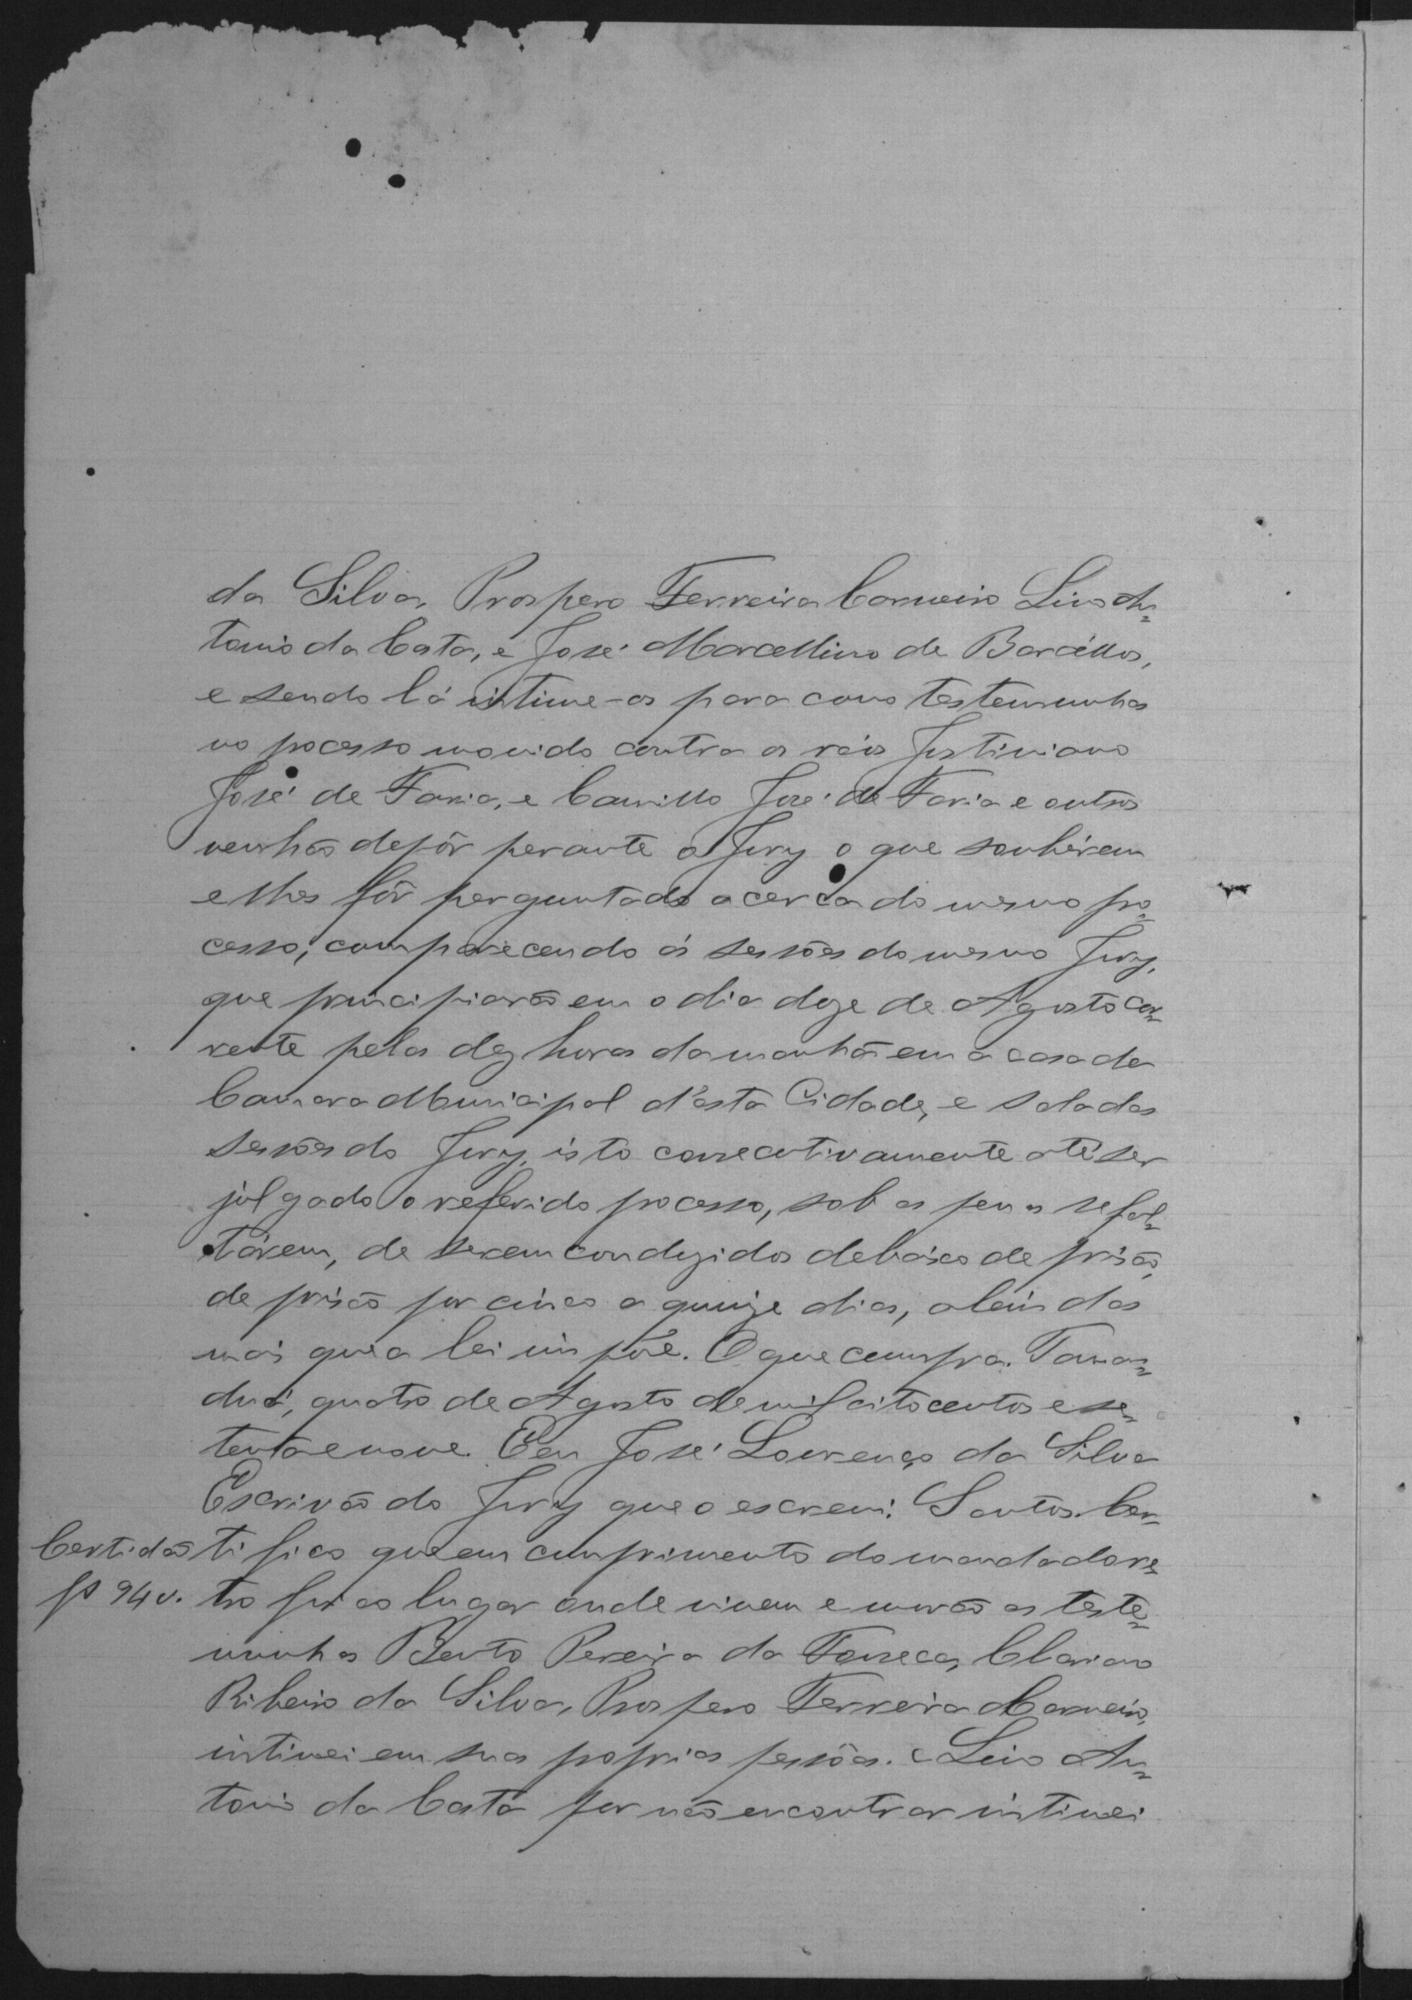 da Silva, Prospero Ferreira Carneiro Lino An-
tonio da Costa, e José Marcellino de Barcéllos,
e sendo lá intime-os para como testemunhas
no pocesso movido contra os réos Justiniano
José de Faria, e Camillo José de Faria e outros
venhão depôr perante o Jury o que souhérem
e lhes fôr perguntado acerca do mesmo po-
cesso; comparecendo ás sessões do mesmo Jury,
que principiarão em o dia doze de Agosto cor-
rente pelas dez horas da manhã em a casa da
Camara Municipal d'esta Cidade, e sala das
sessões do Jury, isto consecutivamente até ser
julgado o referido pocesso, sob as penas se fal-
tárem, de serem conduzidos debaixo de prisão,
de prisão por cinco a quinze dias, alem das
mais que a lei impõe. O que cumpra. Taman-
duá, quatro de Agosto de mil oitocentos e se-
tenta e nove. Eu José Lourenço da Silva
Escrivão do Jury que o escrevi. Santos. Cer-
Certidão tifico que em cumprimento do mandado re-
fs 94v. tro fui ao lugar onde vivem e morão as teste-
munhas Bento Pereira da Fonseca, Clariano
Ribeiro da Silva, Prospero Ferreira Carneiro,
intimei em suas poprias pessôas. e Lino An-
tonio da Costa por não encontrar intimei